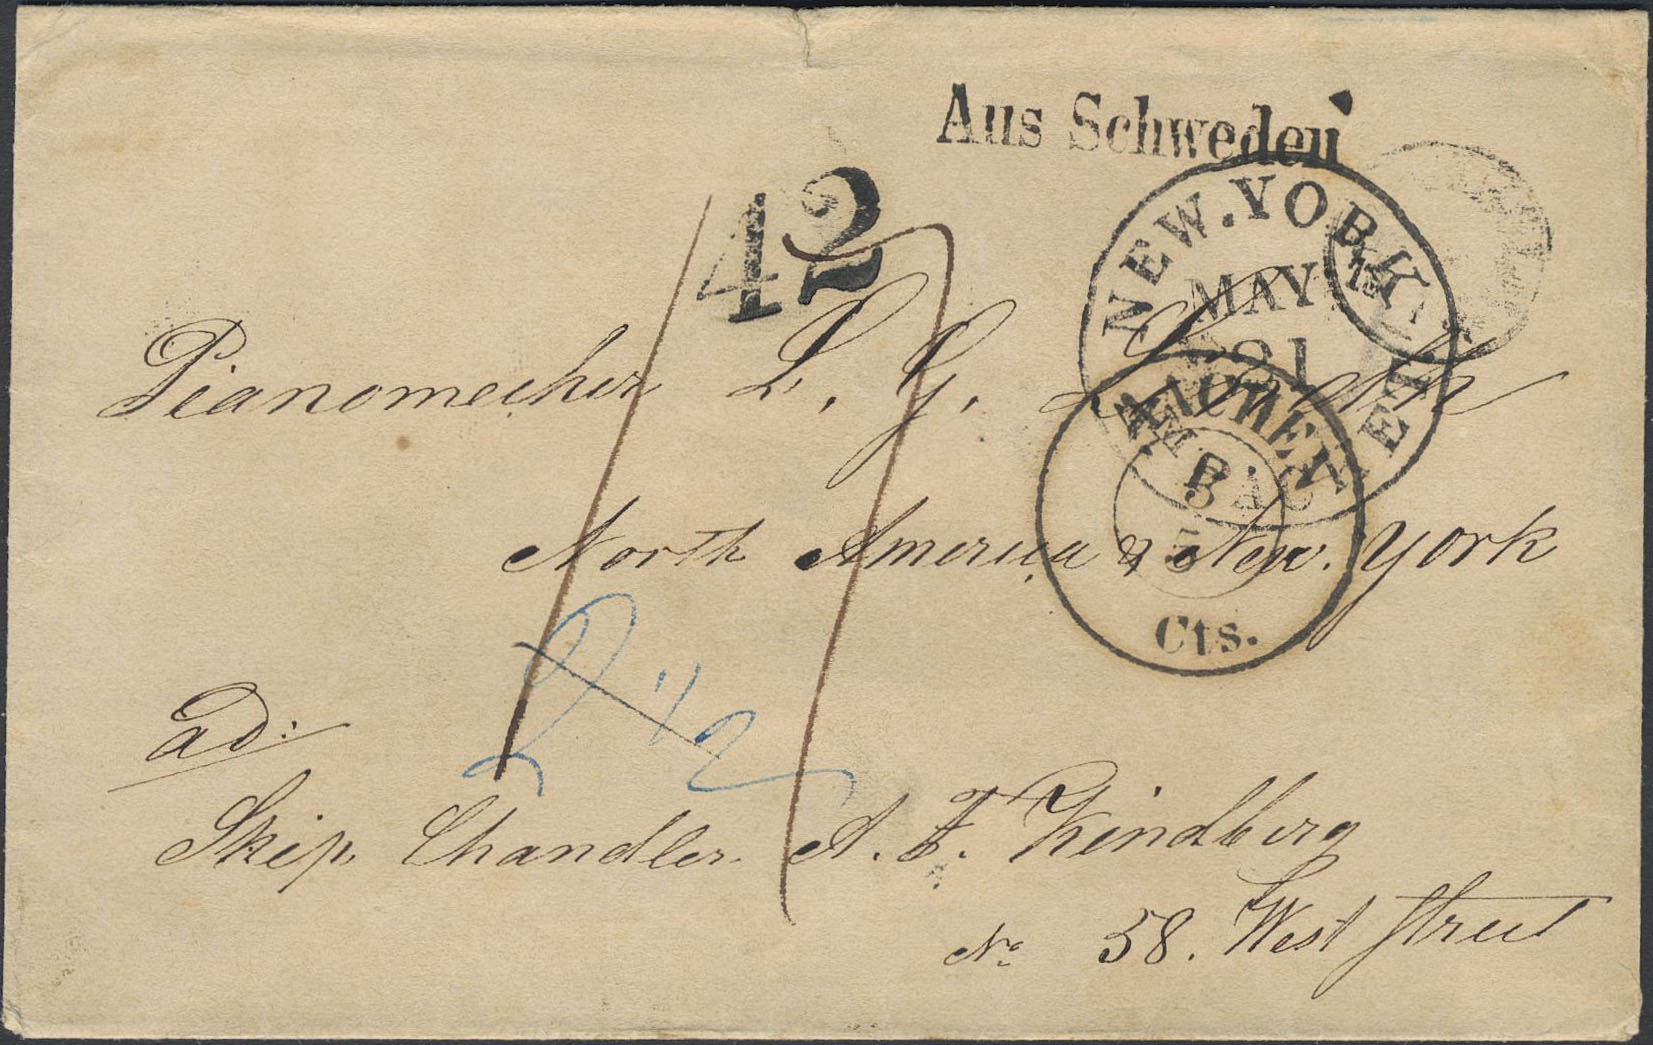 Aus Schweden
42
NEW. YORK
MAY
21
AM. PACKET
AACHEN
5
Cts.
Pianomecher L. G.
North America & New. York
2 1/2
ad:
Skip Chandler A. F. Kindberg
No 58. West Street